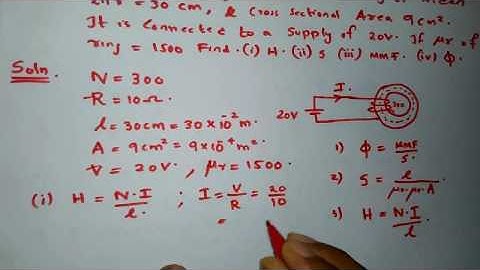 ring = 30 cm, & Cross Sectional Area 9cm².
It is connected to a supply of 20V. If μr of
ring = 1500 Find. (i) H. (ii) S (iii) MMF. (iv) Φ.
Soln.
N = 300
R = 10Ω.
l = 30cm = 30×10⁻² m
A = 9cm² = 9×10⁻⁴ m².
V = 20V, μr = 1500.
I.
20V
300
(i) H = N·I / l. ; I = V/R = 20/10
=
1) Φ = MMF / S.
2) S = l / μ·μr·A
3) H = N·I / l.